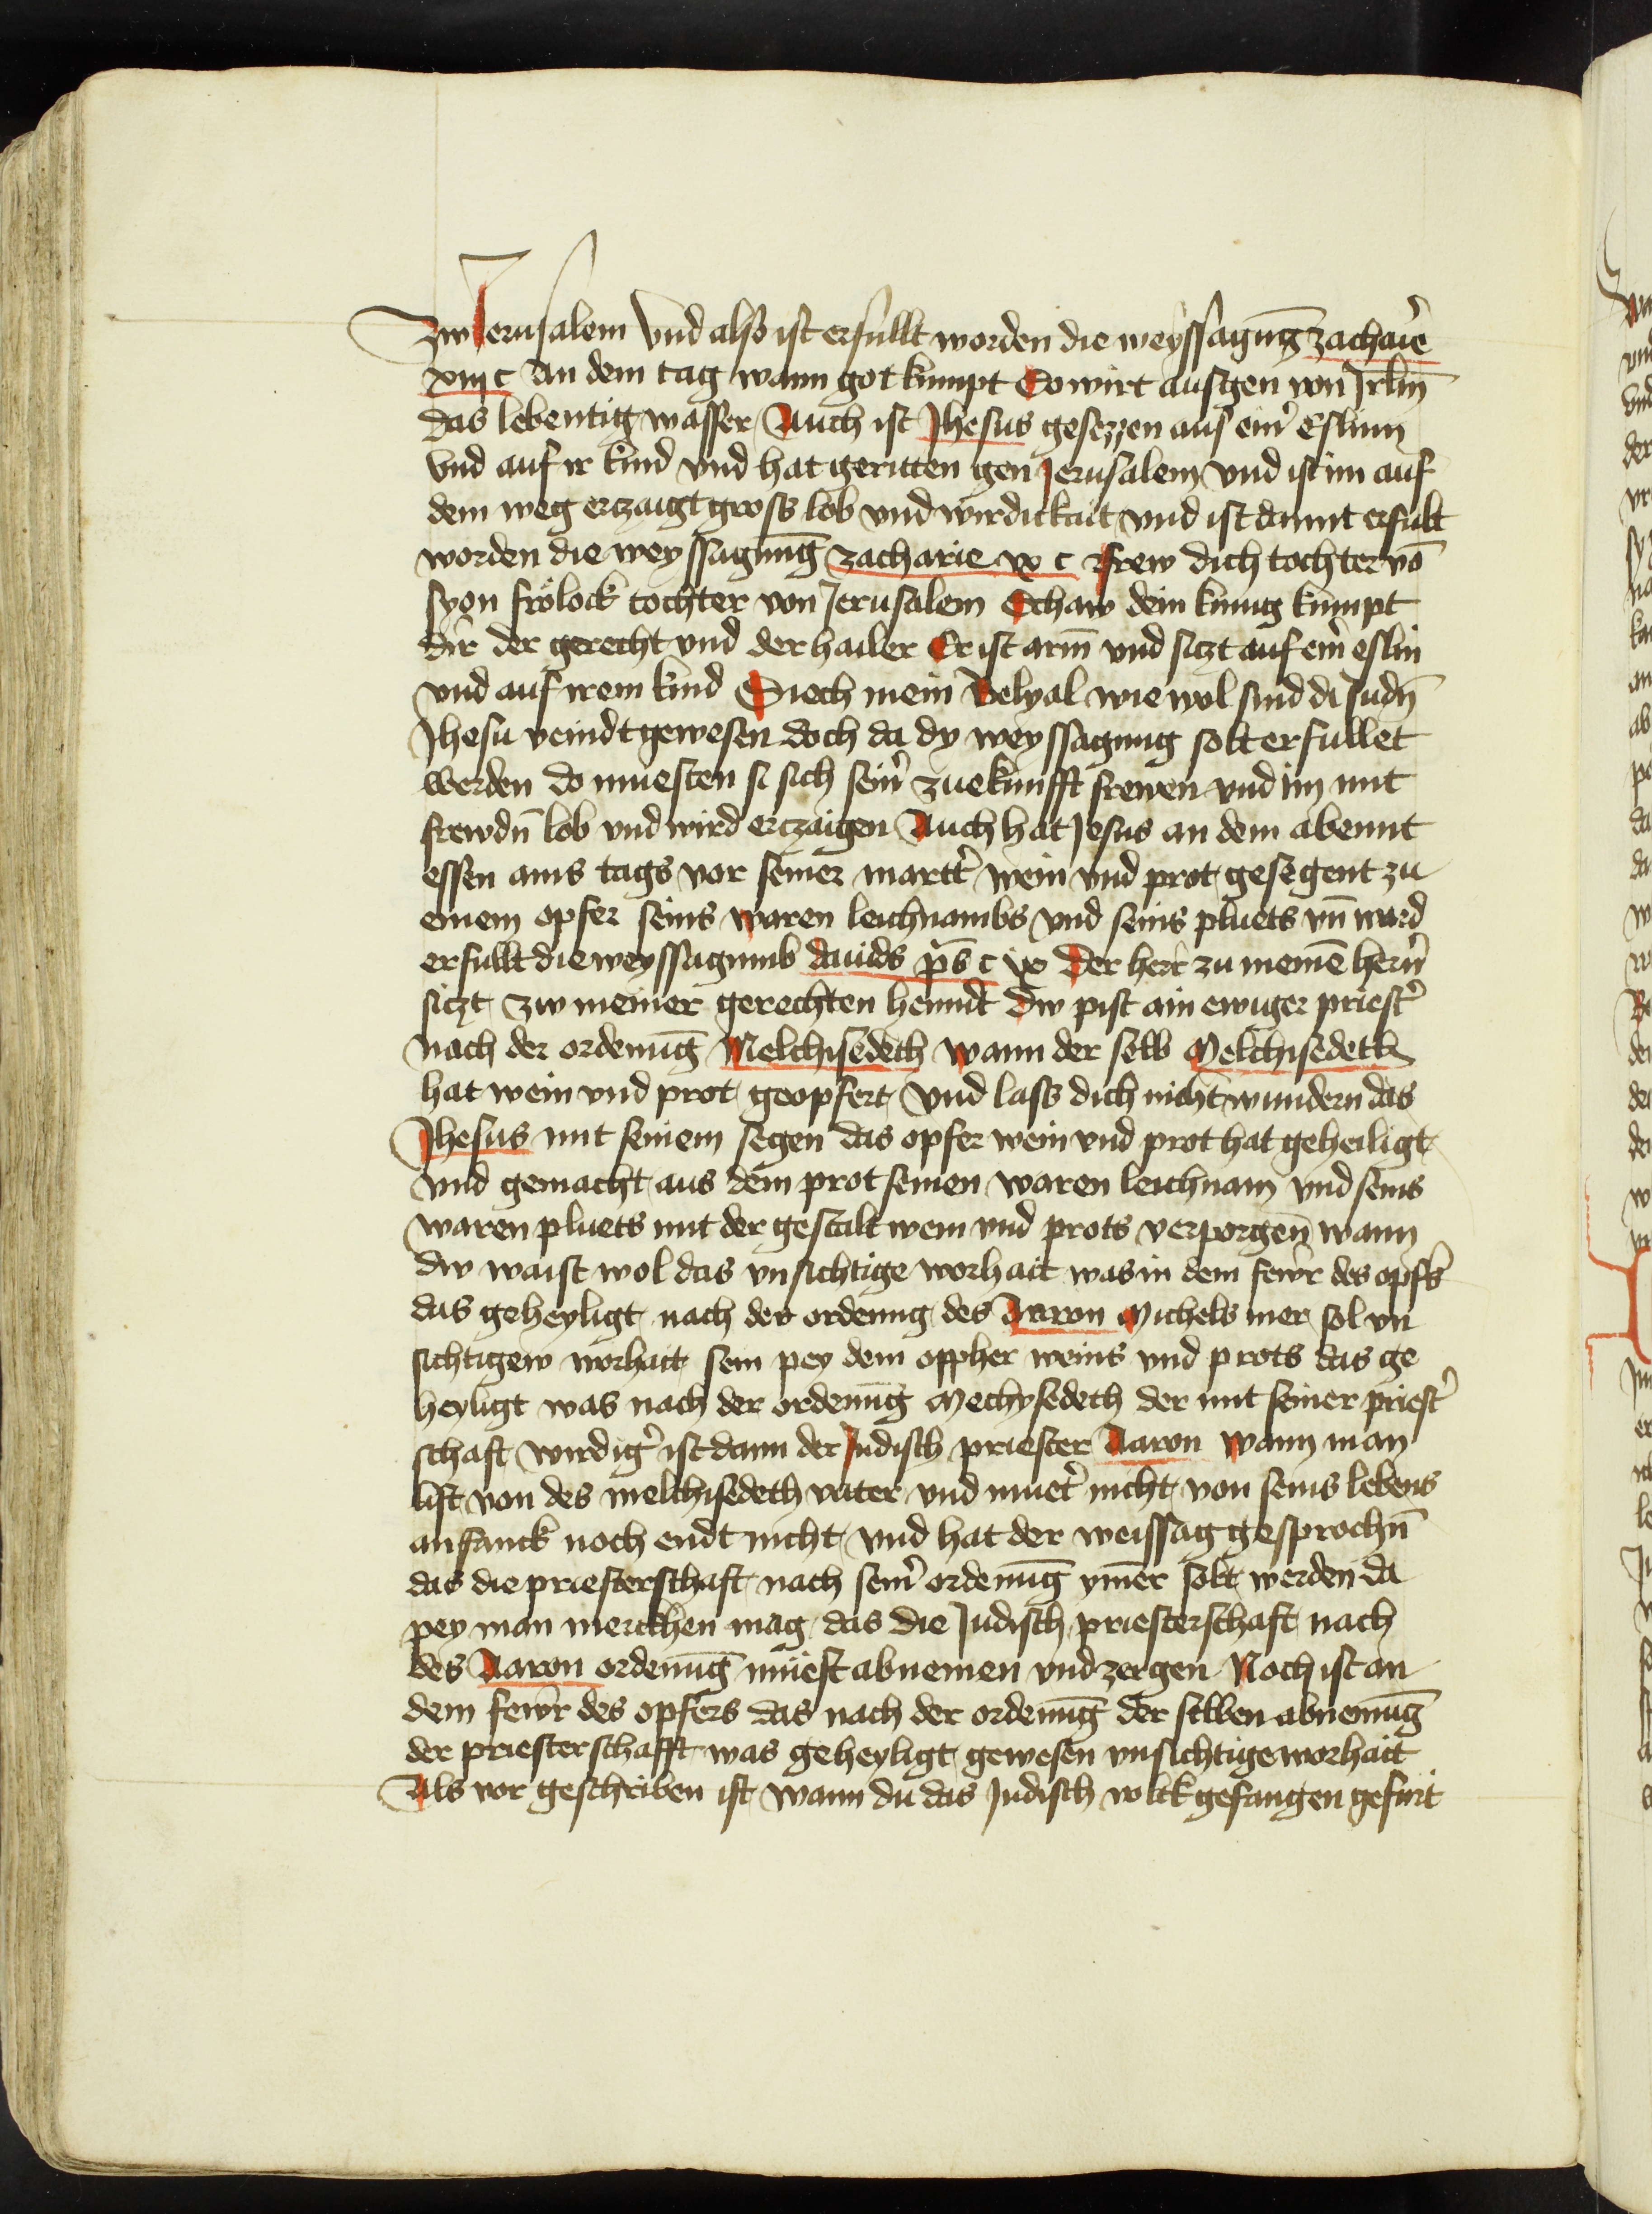 Zw Jerusalem Vnd also ist erfullt worden die weyssagūg zachar̄ie
xiiij c An dem tag wann got kumpt So wirt ausgen von Jrl̄m
das lebentig wasser Auch ist Jhesus gesezzen auf ein̄ Eslinn
Vnd auf ir kind vnd hat geritten gen Jerusalem vnd ist im auf
dem weg erczaigt gross lob vnd wirdickait vnd ist damit erfult
worden die weyssagung zacharie ix c frew dich tochter vō
syon frölock tochter von Jerusalem Schaw dein kunig kumpt
dir der gerecht vnd der hailer Er ist arm̄ vnd siczt auf ein̄ eslin
vnd auf irem kind Siech mein Belyal wie wol sind di Judn̄
Jhesu veindt gewesen doch da dy weyssagung solt erfullet
werden do muesten si sich sein̄ zuekunfft frewen vnd im mit
frewdn̄ lob vnd wird erczaigen Auch hat Jesus an dem abennt
essen ains tags vor seiner martt̄ wein vnd prot gesegent zu
einem opfer seins waren leichnambs vnd seins pluets vn̄ ward
erfullt die weyssagunnb dauids p̄s c ix Der herr zu meinē hern̄
siczt zw meiner gerechten henndt Dw pist ain ewiger priest̄
nach der ordenūg Melchisedech wann der selb Melchisedech
hat wein vnd prot geopfert Vnd lass dich nicht wundern das
Jhesus mit seinem segen das opfer wein vnd prot hat geheiligt
vnd gemacht aus dem prot seinen waren leichnam vnd seins
waren pluets mit der gestalt wein vnd prots verporgen̄ wann
dw waist wol das vnsichtige worhait was in dem fewr des opfs̄
das geheyligt nach der ordenung des Aaron Michels mer sol vn
sichtigew worhait sein pey dem oppher weins vnd prots das ge
heyligt was nach der ordenūg Mechysedech der mit seiner priest̄
schaft wirdiḡ ist dann der Judisch priester Aaron wann man
list von des melchisedech vater vnd muet̄ nicht von seins lebens
anfanck noch endt nicht vnd hat der weissag gesprochn̄
das die priesterschaft nach sein̄ ordenūg ym̄er solt werden da
pey man merckhen mag das die Judisch priesterschaft nach
des Aaron ordenūg müest abnemen vnd zergen Noch ist an
dem fewr des opfers das nach der ordenūg der selben abnemūg
der priesterschafft was geheyligt gewesen vnsichtige worhait
Als vor geschriben ist wann du das Judisch volck gefangen gefürt